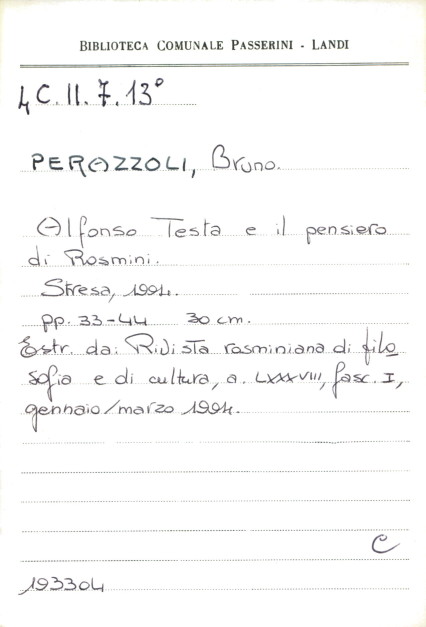 BIBLIOTECA COMUNALE PASSERINI - LANDI
4 C. II. 7. 13°
PERAZZOLI, Bruno.
Alfonso Testa e il pensiero
di Rosmini.
Stresa, 1994.
pp. 33-44 30 cm.
Estr. da: Rivista rosminiana di filo
sofia e di cultura, a. LXXXVIII, fasc. I,
gennaio/marzo 1994.
C
193304